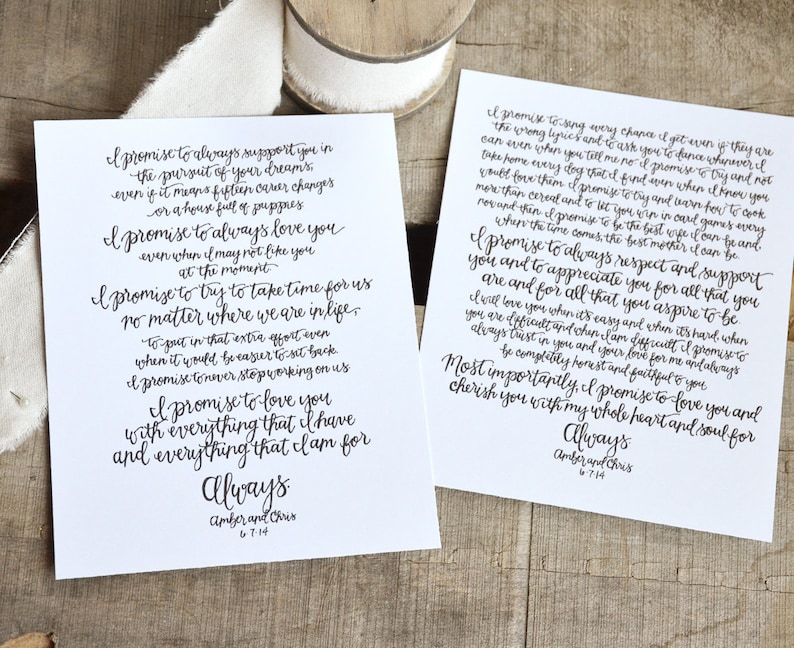 I promise to always support you in
the pursuit of your dreams,
even if it means fifteen career changes
or a house full of puppies
I promise to always love you
even when I may not like you
at the moment
I promise to try to take time for us
no matter where we are in life,
to put in that extra effort even
when it would be easier to sit back.
I promise to never stop working on us
I promise to love you
with everything that I have
and everything that I am for
Always
Amber and Chris
6.7.14
I promise to sing every chance I get even if they are
the wrong lyrics and to ask you to dance whenever I
can even when you tell me no I promise to try and not
take home every dog that I find even when I know you
would love them I promise to try and learn how to cook
more than cereal and to let you win in card games every
now and then I promise to be the best wife I can be and,
when the time comes, the best mother I can be.
I promise to always respect and support
you and to appreciate you for all that you
are and for all that you aspire to be.
I will love you when it's easy and when it's hard, when
you are difficult and when I am difficult. I promise to
always trust in you and your love for me and always
be completely honest and faithful to you
Most importantly, I promise to love you and
cherish you with my whole heart and soul for
Always
Amber and Chris
6.7.14